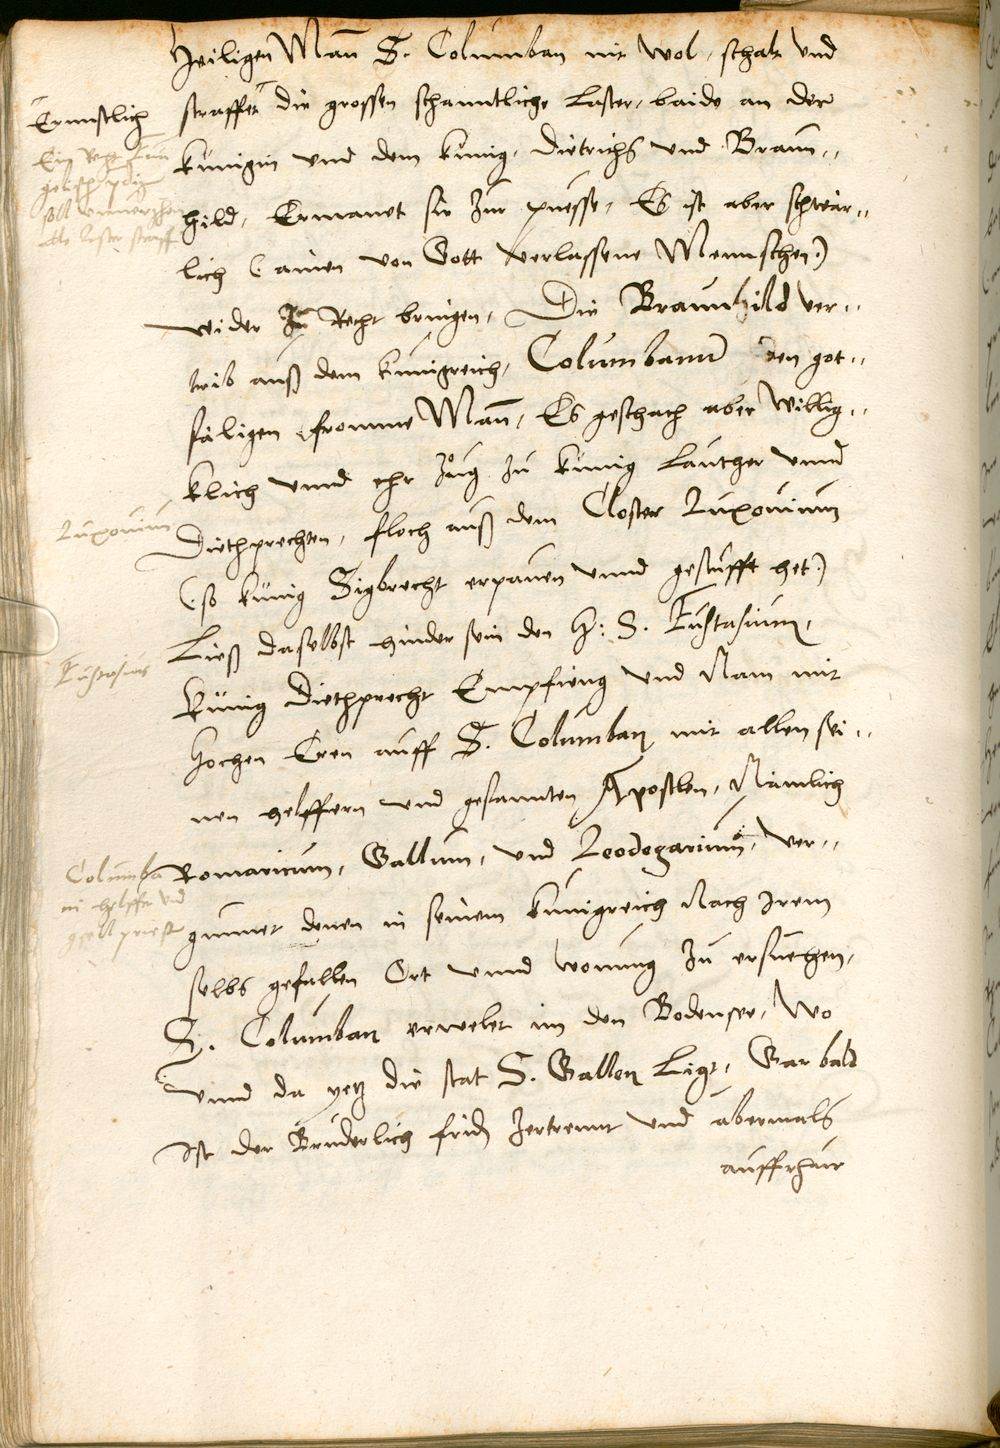 Heiligen Man̄ S. Columban nit wol, schalt vnd
Ernnstlich
straffet die grossen schanntliche Laster, baide an der
künigin vnnd dem künig, Dietrichs vnd Braun¬
hild, Ermanet sie zur puesse, Es ist aber schwär¬
lich (: ainen von Gott verlassene Mennschen :)
wider zu Recht bringen, Die Braunhild ver¬
trib auß dem künigreich, Columbanum den got¬
säligen fromme Man̄, Es geschach aber willig¬
klich vnnd ehr zug zu künig Lauther vnnd
Luxouium
Diethprechten, floch auß dem Closter Luxouium
(: so künig Sigbrecht erpauen vnnd gestüfft het :)
Ließ daselbst hinder sein den H: S. Eustasium,
Eustasius
künig Diethprecht Empfieng vnd Nam mit
hochen Eren auff S. Columban mit allen sei¬
nen helffern vnd gesannten Apostlen, Nämlich
Romaricum, Gallum, vnd Leodegarium, ver¬
Columba
ni helffer vnd
gunnet denen in seinem künigreich Nach Irem
selbs gefallen Ort vnnd wonung zu ersuechen,
S. Columban erwelet im den Bodensee, Wo
vnnd da yetz die stat S. Gallen Ligt, Gar bald
Ist der Brüderlich friden zertrennt vnd abermals
auffrhur